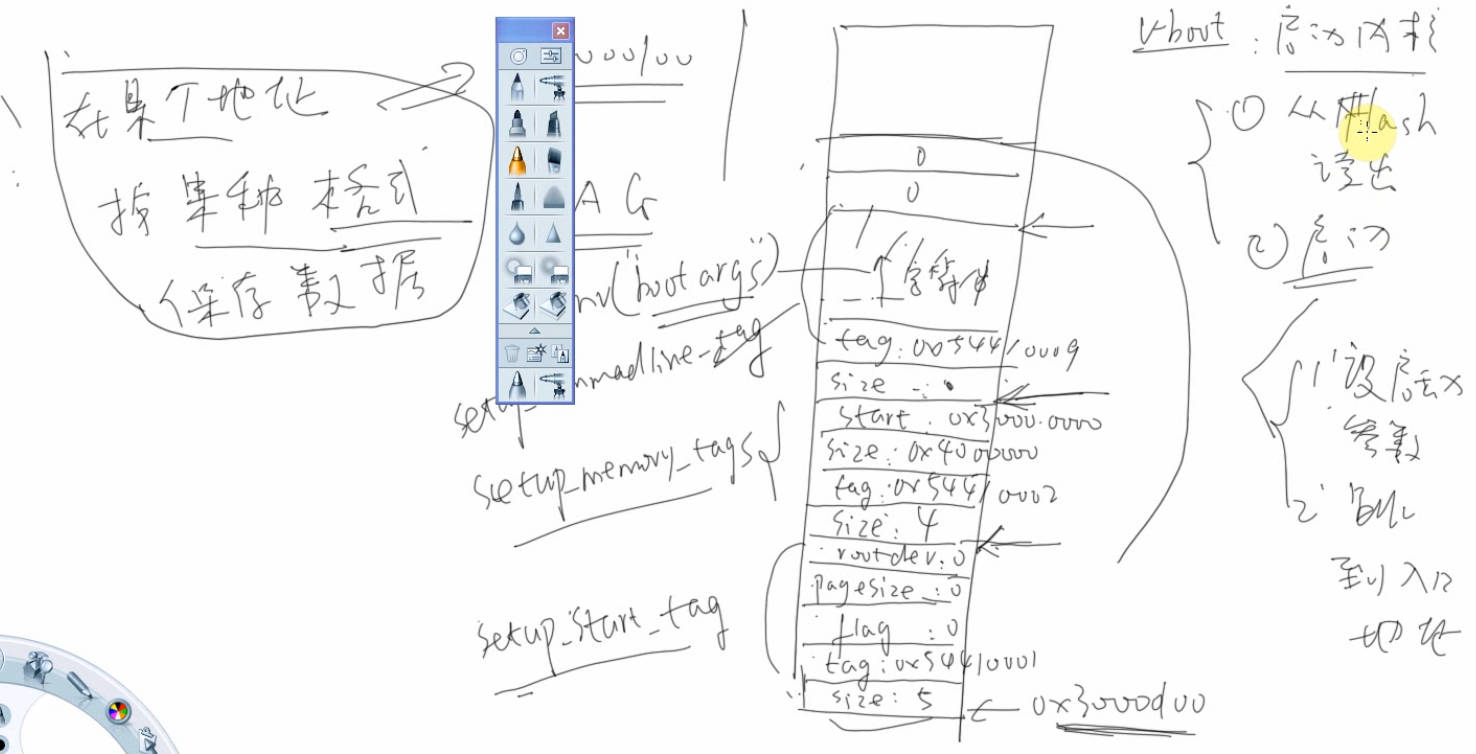 在某个地址
按某种格式
保存数据
000100
AG
nv("bootargs")
mmadline-tag
setup_memory_tags
setup_start_tag
0
0
字符串
tag:0x54410009
size:
start:0x3000.0000
size:0x4000000
tag:0x54410002
size:4
rootdev:0
pagesize:0
flag:0
tag:0x54410001
size:5
0x30000100
u-boot:启动内核
① 从flash
读出
② 启动
1'设启动
参数
2'
到入口
地址